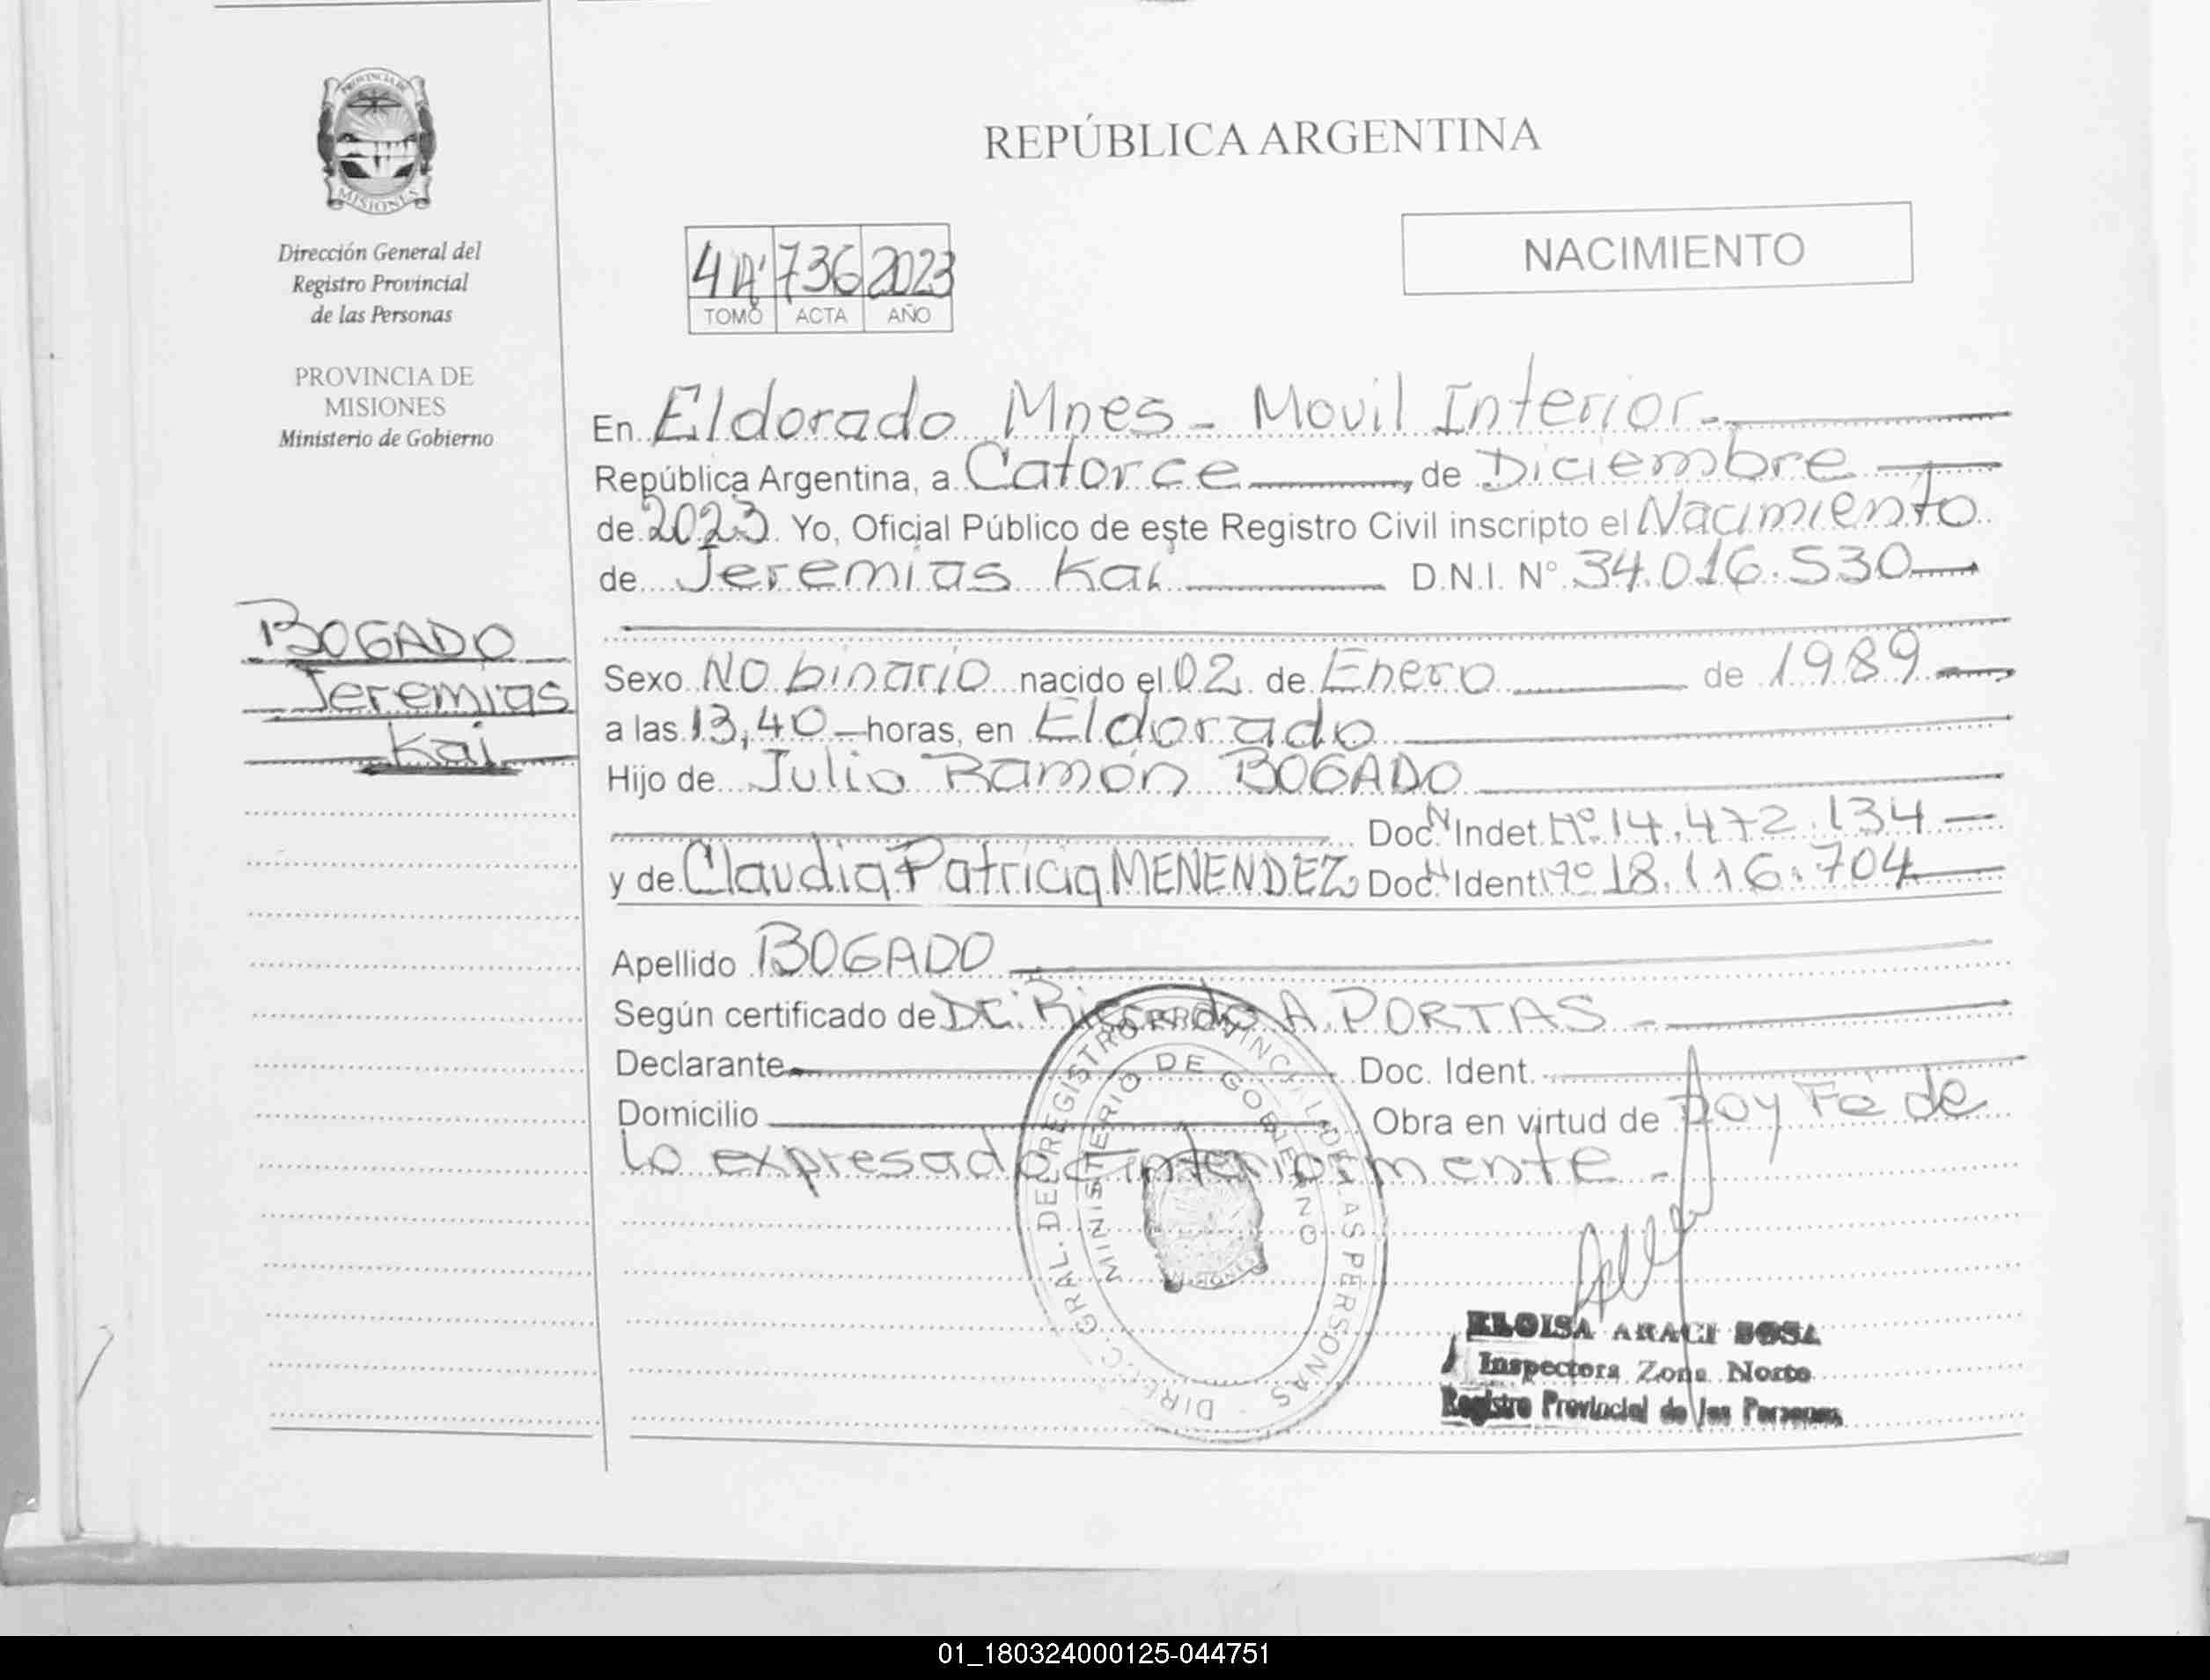 PROVINCIA DE
MISIONES
Dirección General del
Registro Provincial
de las Personas
PROVINCIA DE
MISIONES
Ministerio de Gobierno
BOGADO
Jeremias
Kai
REPÚBLICA ARGENTINA
NACIMIENTO
736 2023
TOMO ACTA AÑO
En Eldorado Mnes - Movil Interior -
República Argentina, a Catorce, de Diciembre
de 2023 Yo, Oficial Público de este Registro Civil inscripto el Nacimiento
de Jeremias Kai D.N.I. N° 34.016.530
Sexo No binario nacido el 02 de Enero de 1989
a las 13,40 horas, en Eldorado
Hijo de Julio Ramón BOGADO
Doc. N Indet. Nº 14.472.134
y de Claudia Patricia MENENDEZ Doc. N Ident. Nº 18.116.704
Apellido BOGADO
Según certificado de Dr. Ricardo A. PORTAS -
Declarante Doc. Ident.
Domicilio Obra en virtud de Doy Fe de
lo expresado anteriormente -
DIREC. GRAL. DEL REGISTRO PROVINCIAL DE LAS PERSONAS
MINISTERIO DE GOBIERNO
ELOISA ARACI SOSA
Inspectora Zona Norte
Registro Provincial de las Personas
01_180324000125-044751